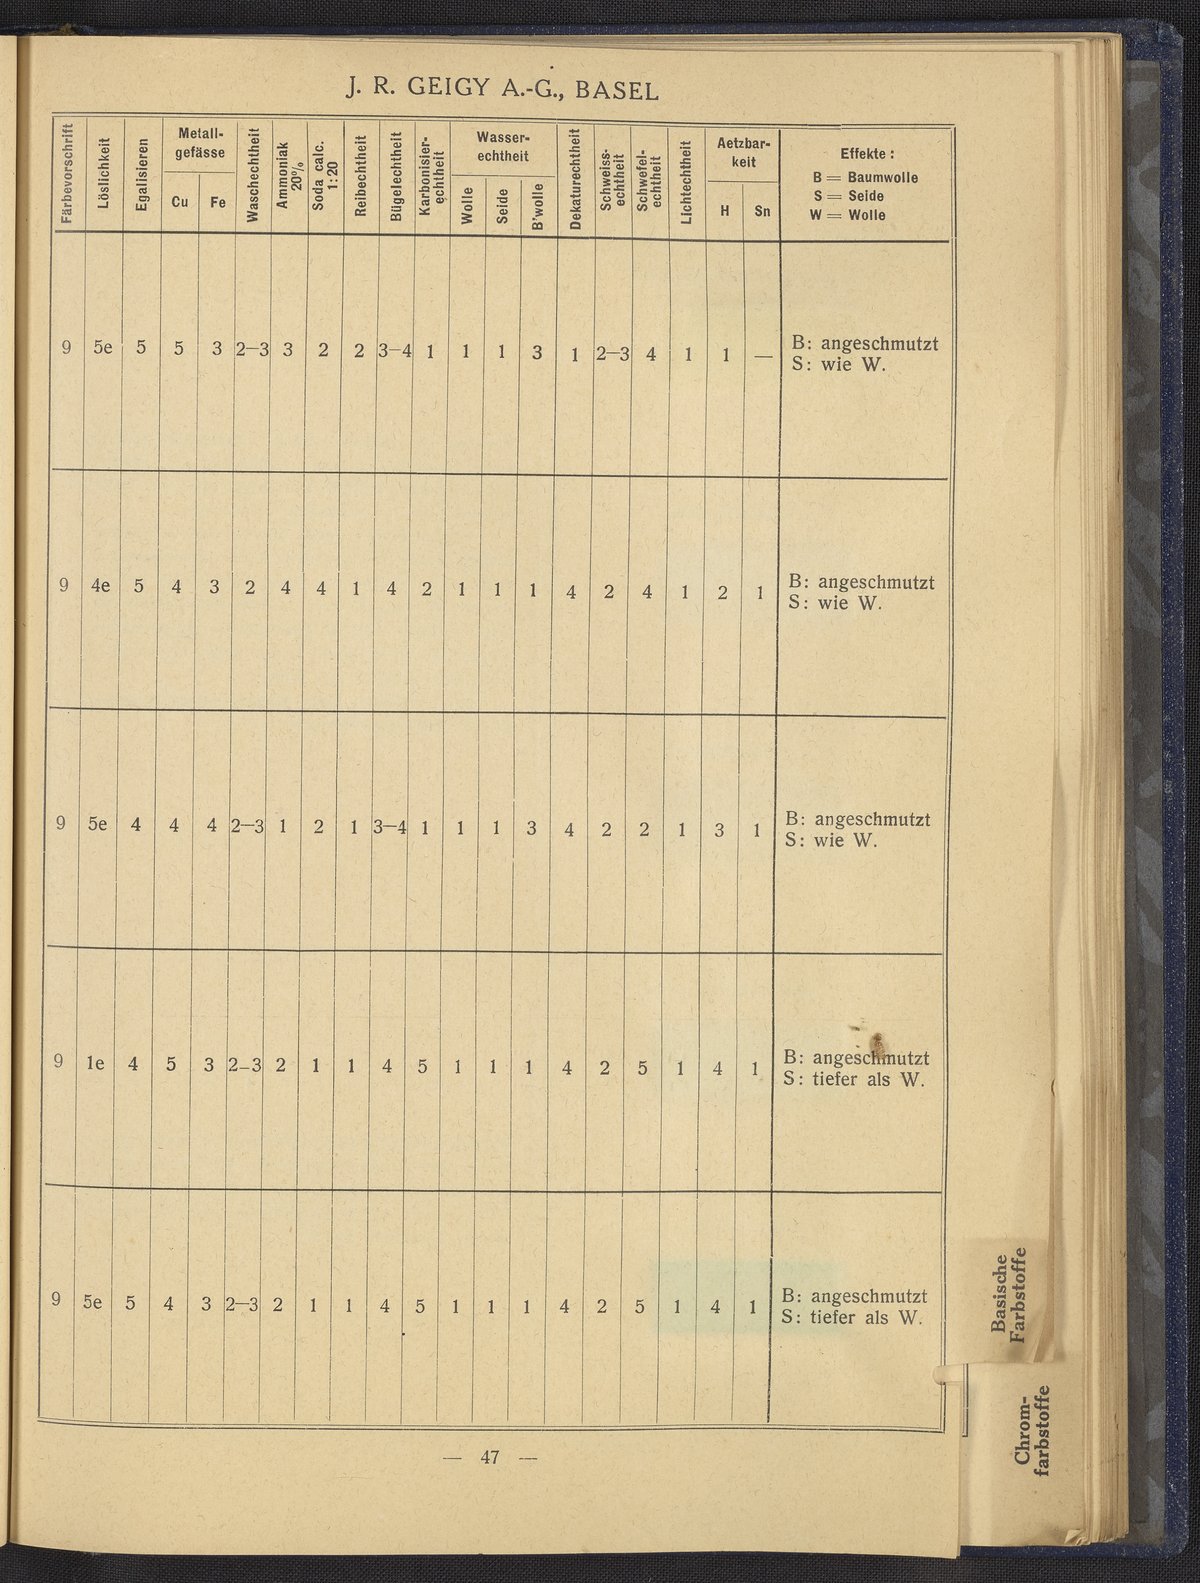 J. R. GEIGY A.-G., BASEL
Färbevorschrift
Löslichkeit
Egalisieren
Metall-
gefässe
Cu Fe
Waschechtheit
Ammoniak
20%
Soda calc.
1:20
Reibechtheit
Bügelechtheit
Karbonisier-
echtheit
Wasser-
echtheit
Wolle
Seide
B'wolle
Dekaturechtheit
Schweiss-
echtheit
Schwefel-
echtheit
Lichtechtheit
Aetzbar-
keit
H Sn
Effekte :
B = Baumwolle
S = Seide
W = Wolle
9 5e 5 5 3 2—3 3 2 2 3—4 1 1 1 3 1 2—3 4 1 1 — B: angeschmutzt
S: wie W.
9 4e 5 4 3 2 4 4 1 4 2 1 1 1 4 2 4 1 2 1 B: angeschmutzt
S: wie W.
9 5e 4 4 4 2—3 1 2 1 3—4 1 1 1 3 4 2 2 1 3 1 B: angeschmutzt
S: wie W.
9 1e 4 5 3 2–3 2 1 1 4 5 1 1 1 4 2 5 1 4 1 B: angeschmutzt
S: tiefer als W.
9 5e 5 4 3 2—3 2 1 1 4 5 1 1 1 4 2 5 1 4 1 B: angeschmutzt
S: tiefer als W.
— 47 —
Basische
Farbstoffe
Chrom-
farbstoffe